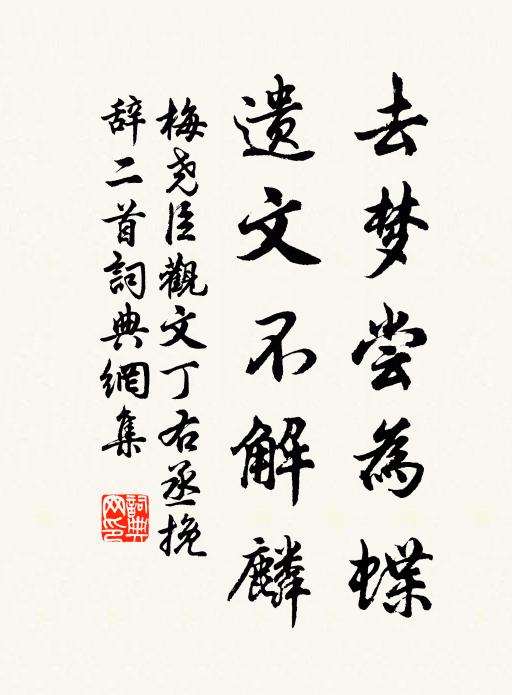 去梦尝為蝶
遗文不解麟
梅尧臣觀文丁右丞挽
辞二首詞典網集
詞典网印